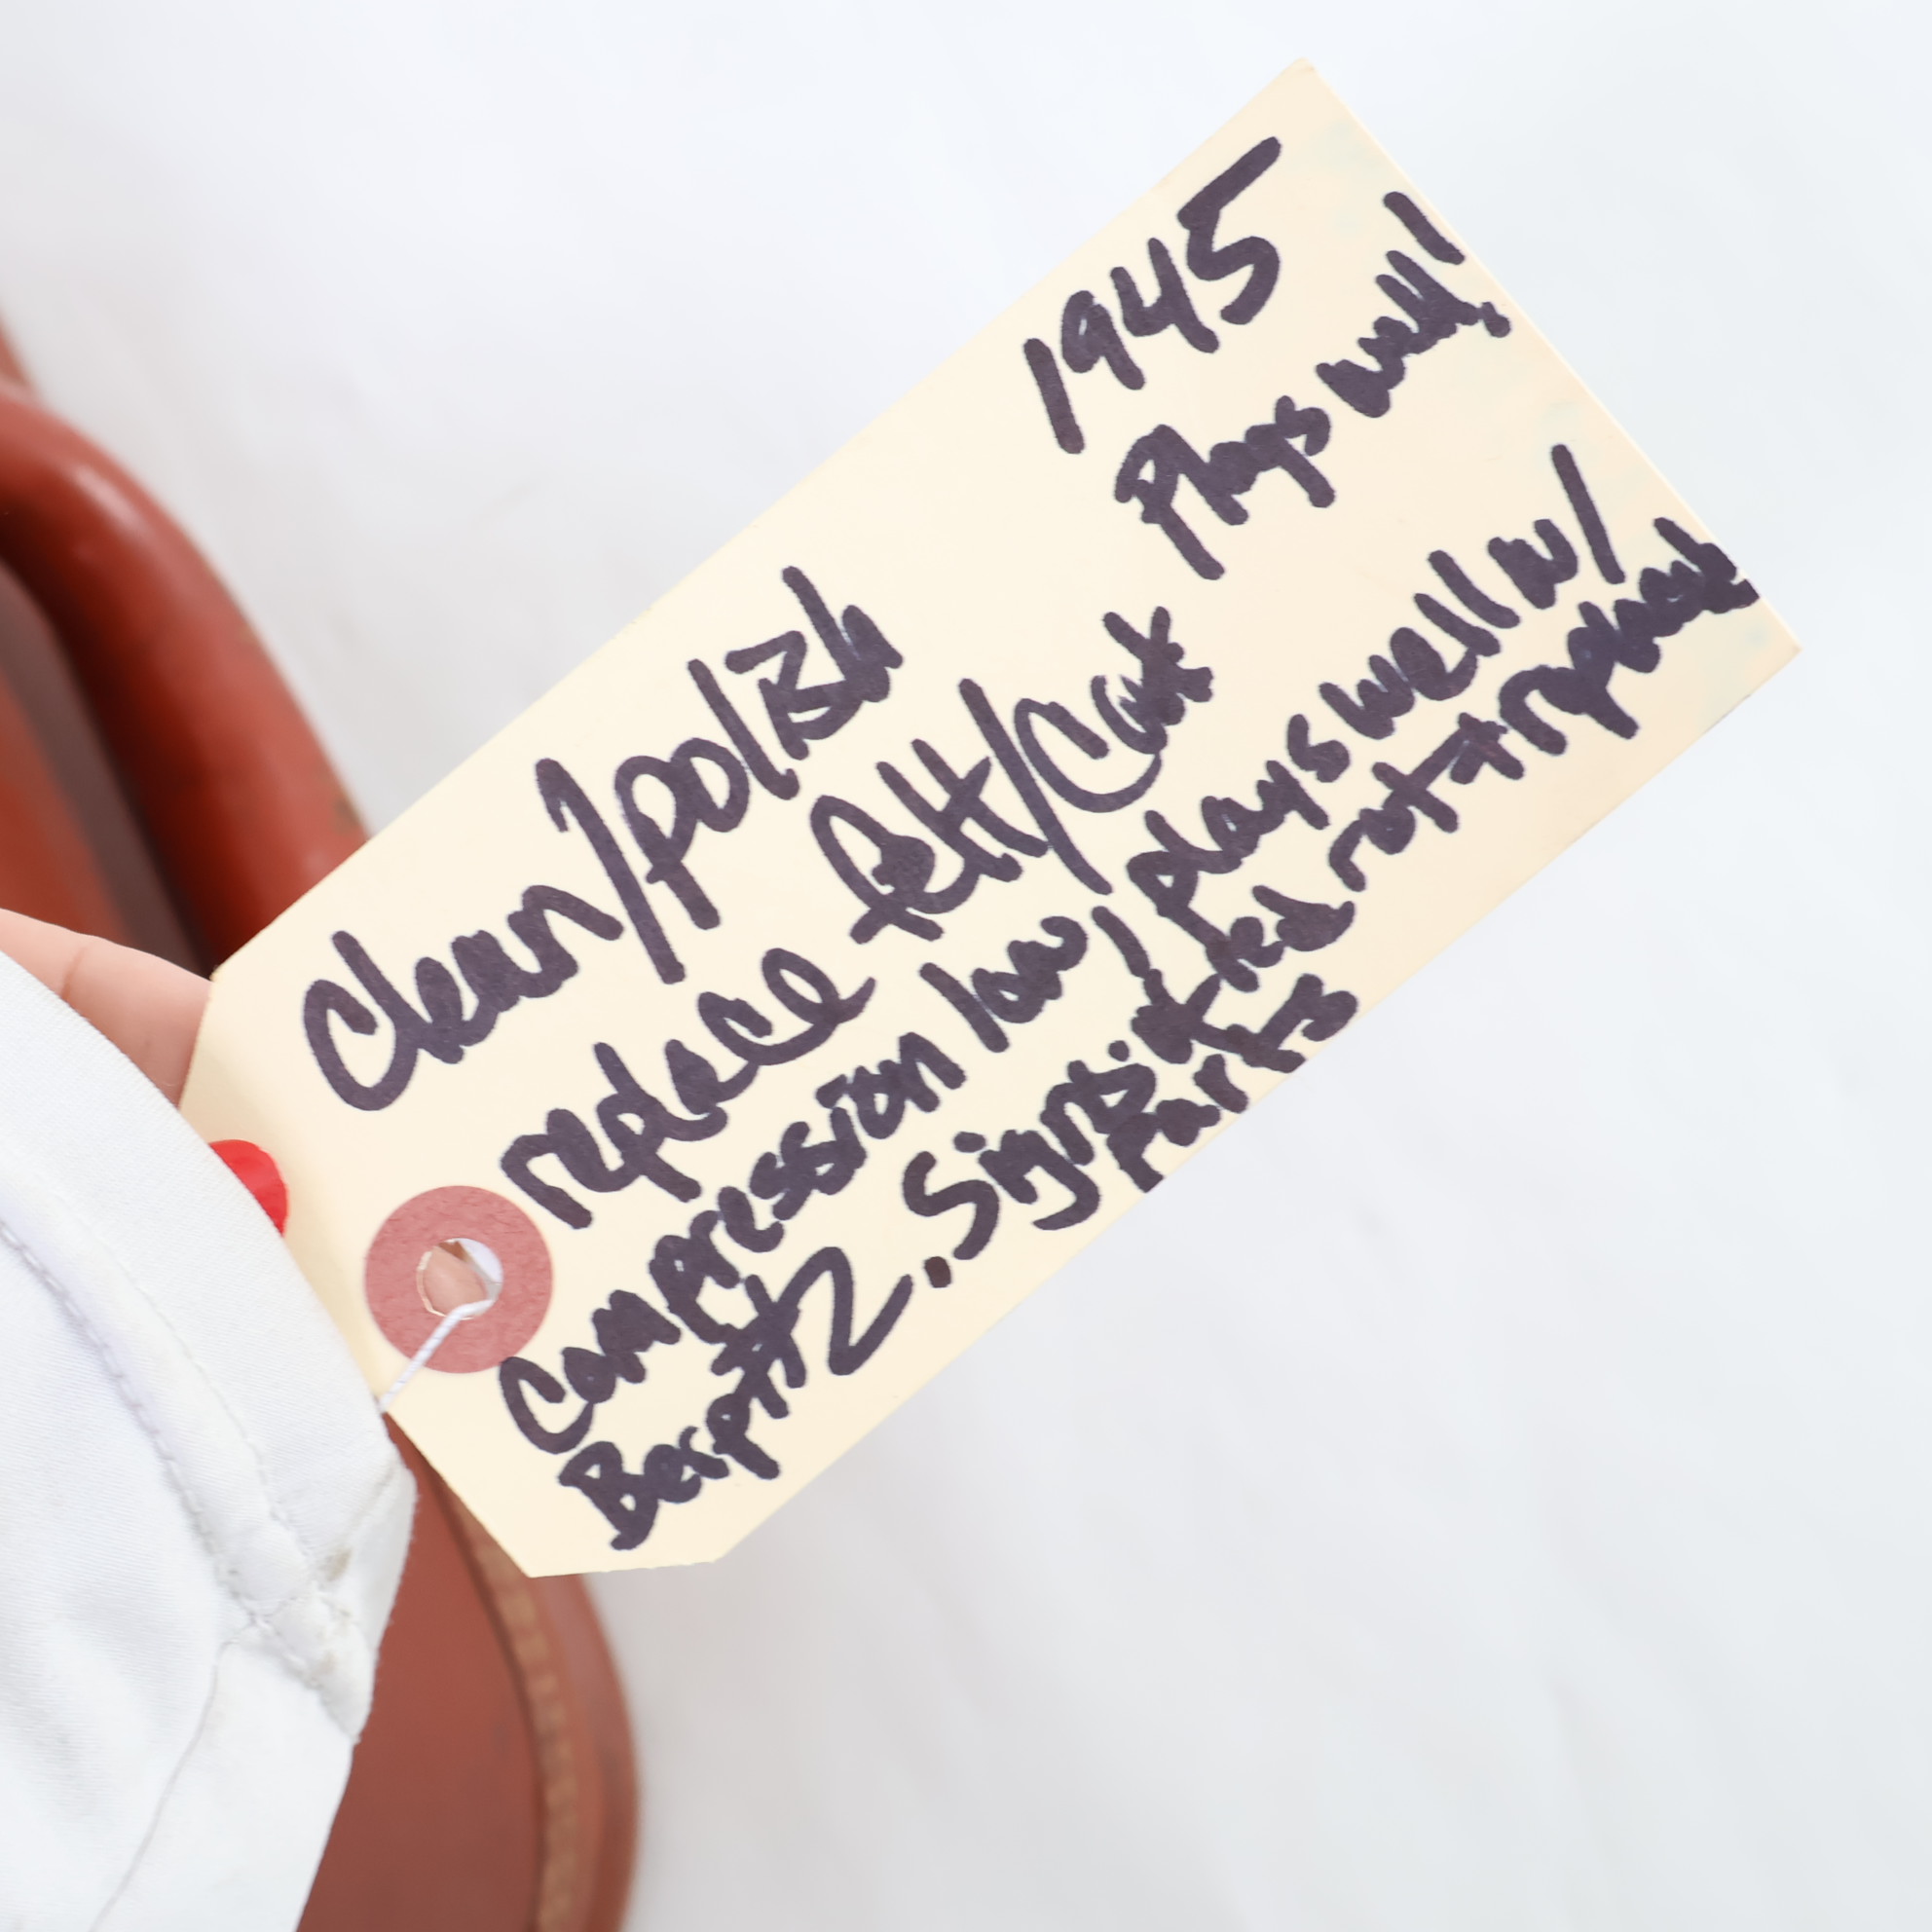 1945
Plays well!
Clean/polish
replace felt/Cork
Compression low/plays well w/
#2. Signs: red rot + replaced
Parts